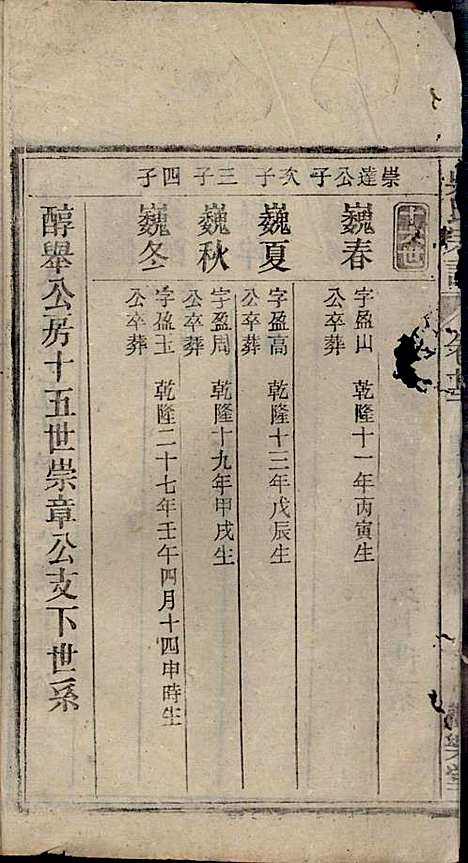 崇達公子
巍春
字盈山 乾隆十一年丙寅生
公卒葬
次子
巍夏
字盈高 乾隆十三年戊辰生
公卒葬
三子
巍秋
字盈周 乾隆十九年甲戌生
公卒葬
四子
巍冬
字盈玉 乾隆二十七年壬午四月十四申時生
公卒葬
醇舉公房十五世崇章公支下世系